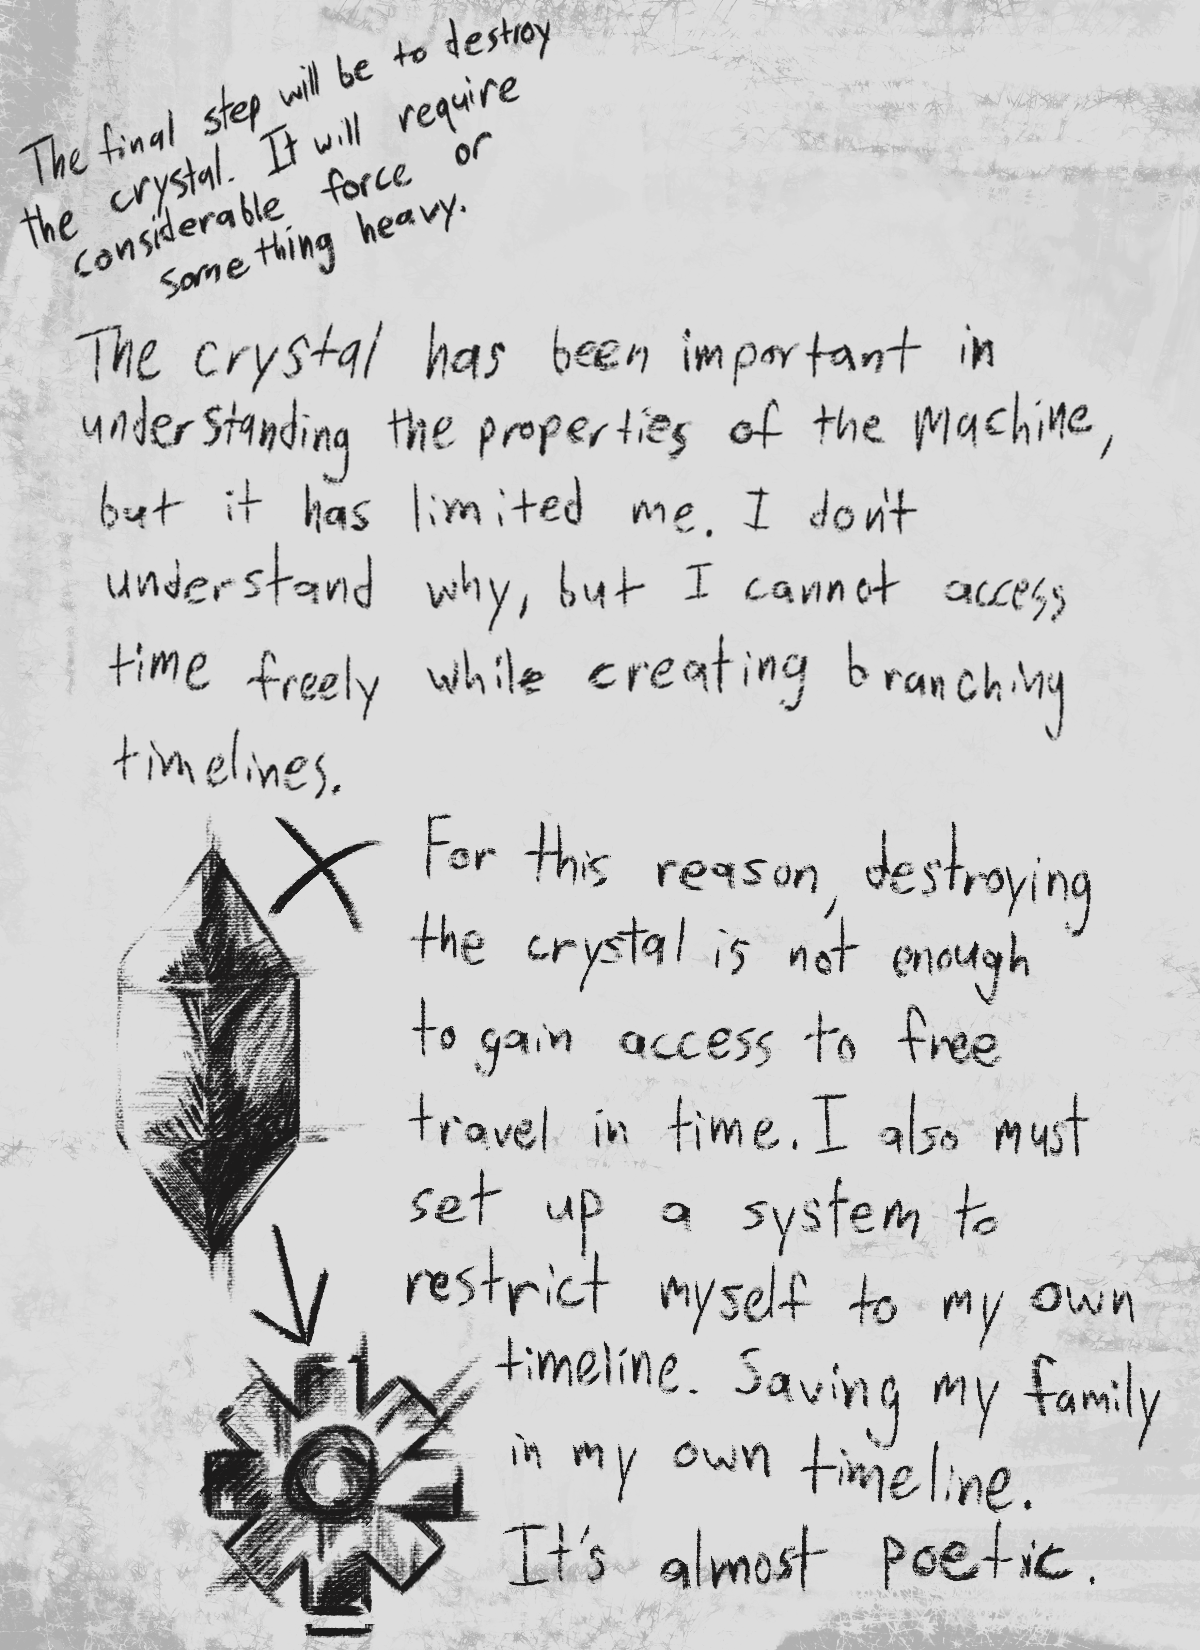 The final step will be to destroy
the crystal. It will require
considerable force or
something heavy.
The crystal has been important in
understanding the properties of the Machine,
but it has limited me. I don't
understand why, but I cannot access
time freely while creating branching
timelines.
For this reason, destroying
the crystal is not enough
to gain access to free
travel in time. I also must
set up a system to
restrict myself to my own
timeline. Saving my family
in my own timeline.
It's almost poetic.